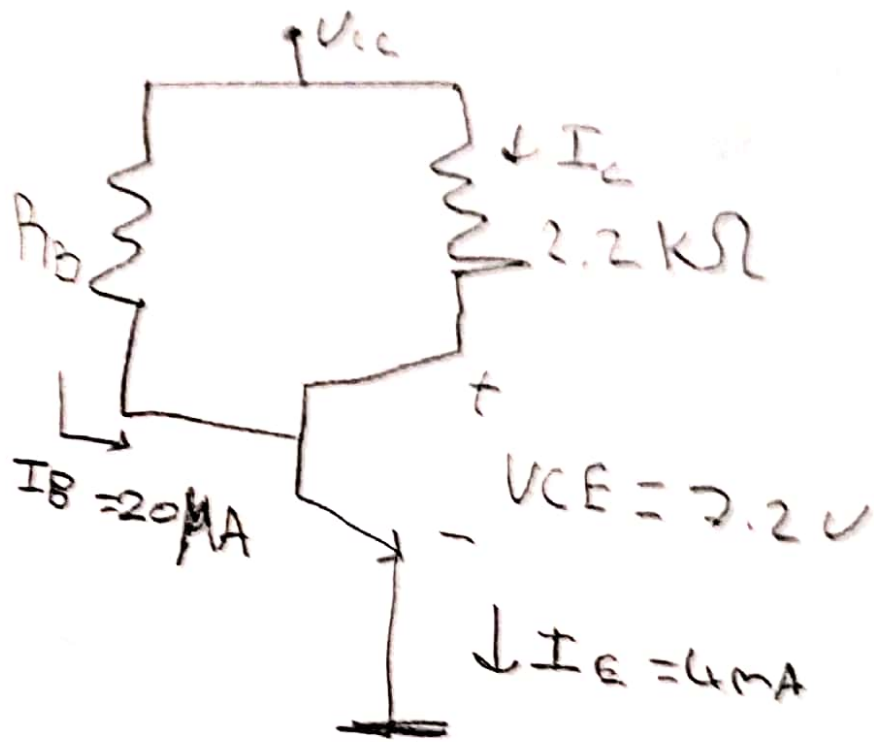 Vcc
↓ Ic
RB
2.2 kΩ
+
IB = 20 μA
VCE = 7.2 V
-
↓ IE = 4mA